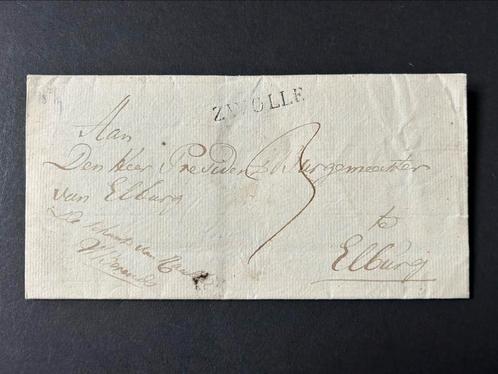 ZWOLLE
3
Aan
Den Heer President Burgemeester
van Elburg
te
Elburg
De Schout van